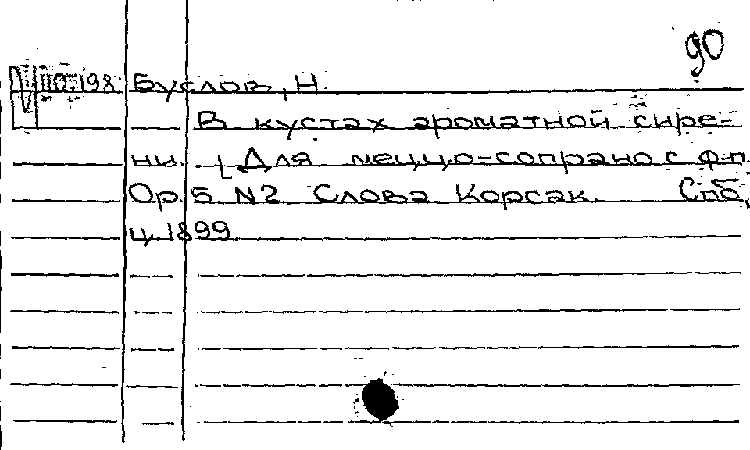 90
Ю-198 Буслов, Н.
В кустах ароматной сире-
ни. [Для меццо-сопрано с ф-п
Ор. 5 N2 Слова Корсак. Спб,
ц. 1899